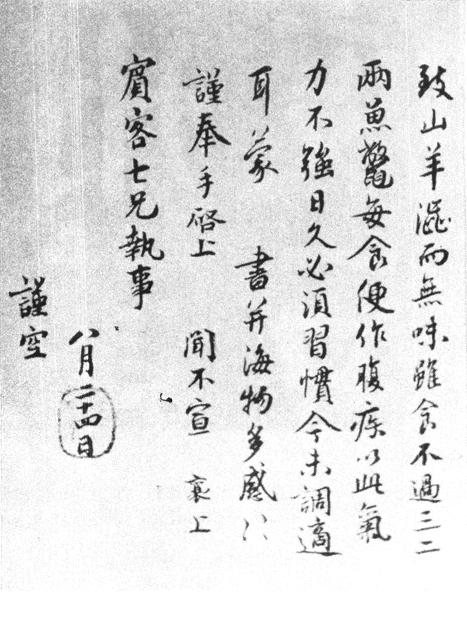 致山羊澀而無味雖食不過三二
兩魚鼈每食便作腹疾以此氣
力不強日久必須習慣今未調適
耳蒙 書并海物多感〻
謹奉手啓上 聞不宣 襄上
賓客七兄執事
八月二十四日
謹空